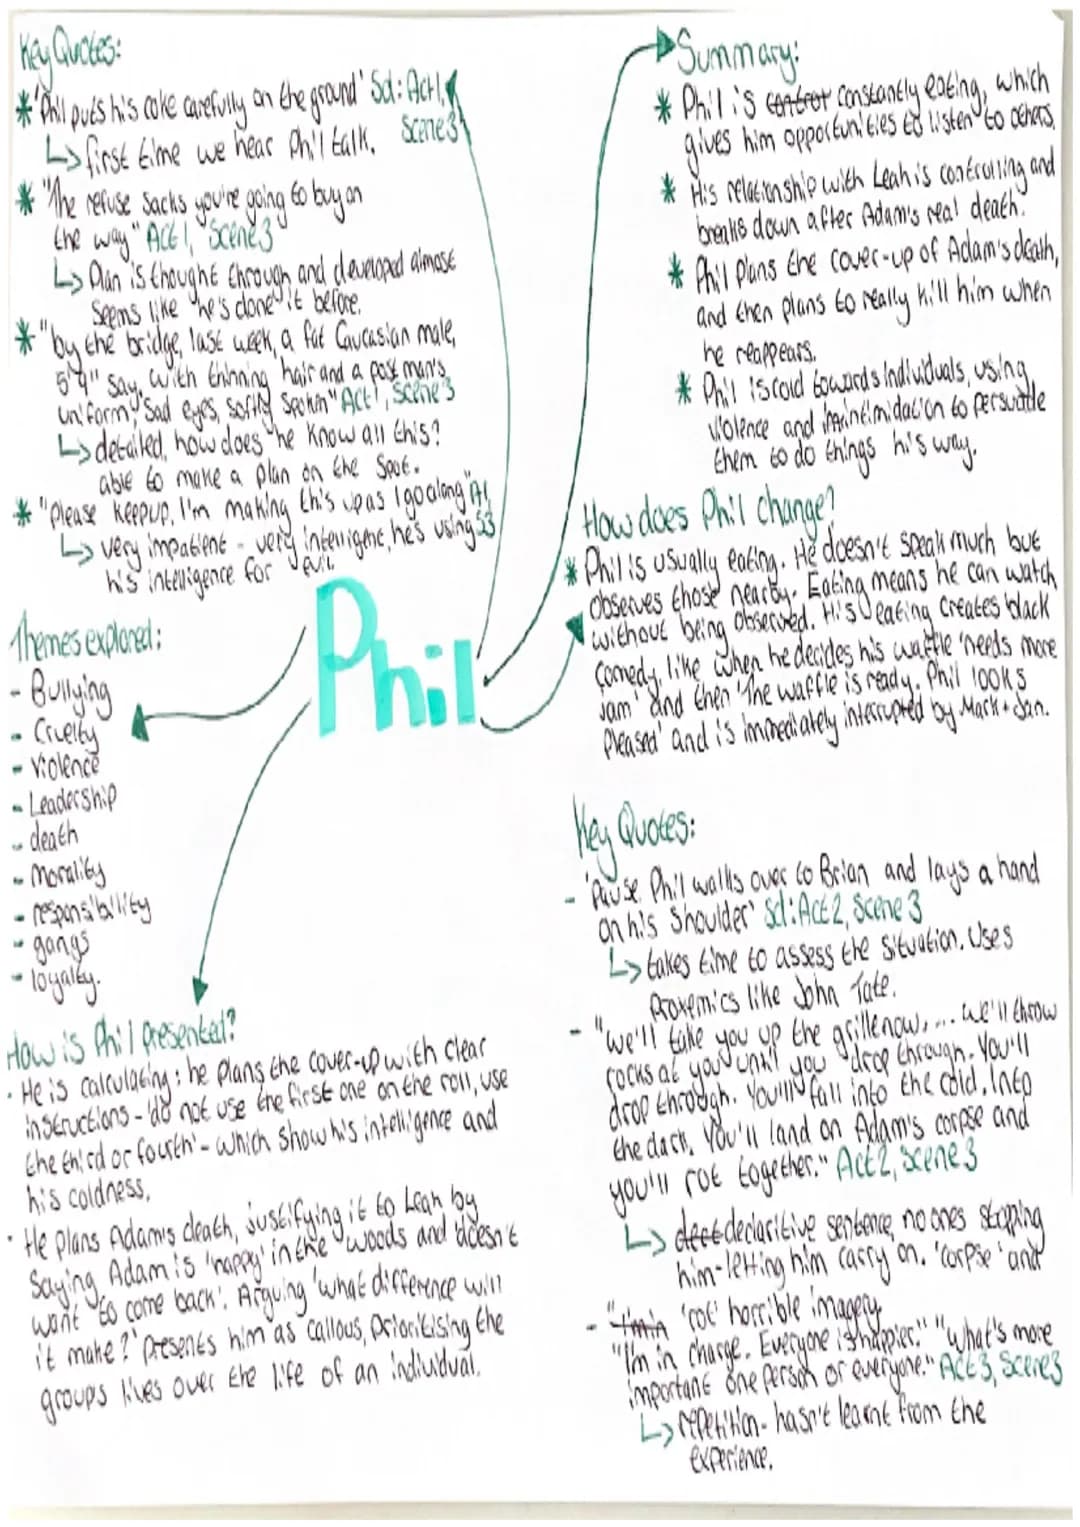 Key Quotes:
* 'Phil puts his coke carefully on the ground' Sd: Act 1, Scene 3
↳ first time we hear Phil talk.
* "The refuse sacks you're going to buy on
the way" Act 1, Scene 3
↳ Plan is thought through and developed almost
seems like he's done it before.
* "by the bridge, last week, a fat Caucasian male,
5'9" say, with thinning hair and a post man's
uniform, sad eyes, softly spoken" Act 1, Scene 3
↳ detailed, how does he know all this?
able to make a plan on the spot.
* "please keep up, I'm making this up as I go along" A1, S3
↳ very impatient - very intelligent, he's using
his intelligence for evil.
Phil
Themes explored:
- Bullying
- Cruelty
- Violence
- Leadership
- death
- Morality
- responsibility
- gangs
- loyalty.
How is Phil presented?
· He is calculating: he plans the cover-up with clear
instructions - 'do not use the first one on the roll, use
the third or fourth' - which show his intelligence and
his coldness.
· He plans Adam's death, justifying it to Leah by
saying Adam is 'happy' in the woods and 'doesn't
want to come back'. Arguing 'what difference will
it make?' presents him as callous, prioritising the
groups lives over the life of an individual.
Summary:
* Phil is constantly eating, which
gives him opportunities to listen to others.
* His relationship with Leah is controlling and
breaks down after Adam's real death.
* Phil plans the cover-up of Adam's death,
and then plans to really kill him when
he reappears.
* Phil is cold towards individuals, using
violence and intimidation to persuade
them to do things his way.
How does Phil change?
* Phil is usually eating. He doesn't speak much but
observes those nearby. Eating means he can watch
without being observed. His eating creates black
comedy, like when he decides his waffle 'needs more
jam' and then 'The waffle is ready. Phil looks
pleased' and is immediately interrupted by Mark + Jan.
Key Quotes:
- 'Pause. Phil walks over to Brian and lays a hand
on his shoulder' Sd: Act 2, Scene 3
↳ takes time to assess the situation. Uses
proxemics like John Tate.
- "We'll take you up the grille now, ... we'll throw
rocks at you until you drop through. You'll
drop through. You'll fall into the cold. Into
the dark. You'll land on Adam's corpse and
you'll rot together." Act 2, Scene 3
↳ declaritive sentence, no ones stopping
him - letting him carry on. 'corpse' and
'rot' horrible imagery.
- "I'm in charge. Everyone is happier." "What's more
important one person or everyone." Act 3, Scene 3
↳ repetition - hasn't learnt from the
experience.